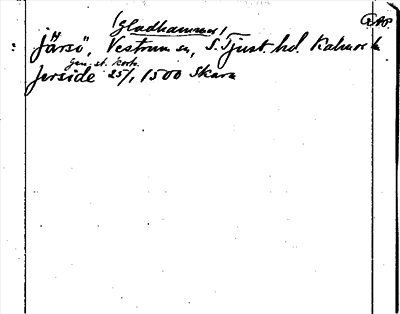 (Gladhammar)
Järsö, Vestrum sn, S. Tjust hd. Kalmar l.
gen. st. kort.
Jerside 25/1 1500 Skara